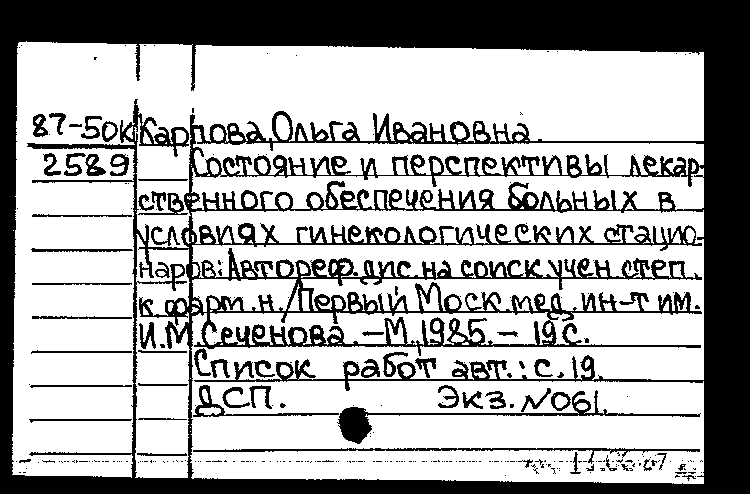 87-50к Карпова, Ольга Ивановна.
2589 Состояние и перспективы лекар-
ственного обеспечения больных в
условиях гинекологических стацио-
наров: Автореф. дис. на соиск. учен. степ.
к. фарм. н. / Первый Моск. мед. ин-т им.
И.М. Сеченова. – М., 1985. – 19 с.
Список работ авт.: с. 19.
ДСП. Экз. №061.